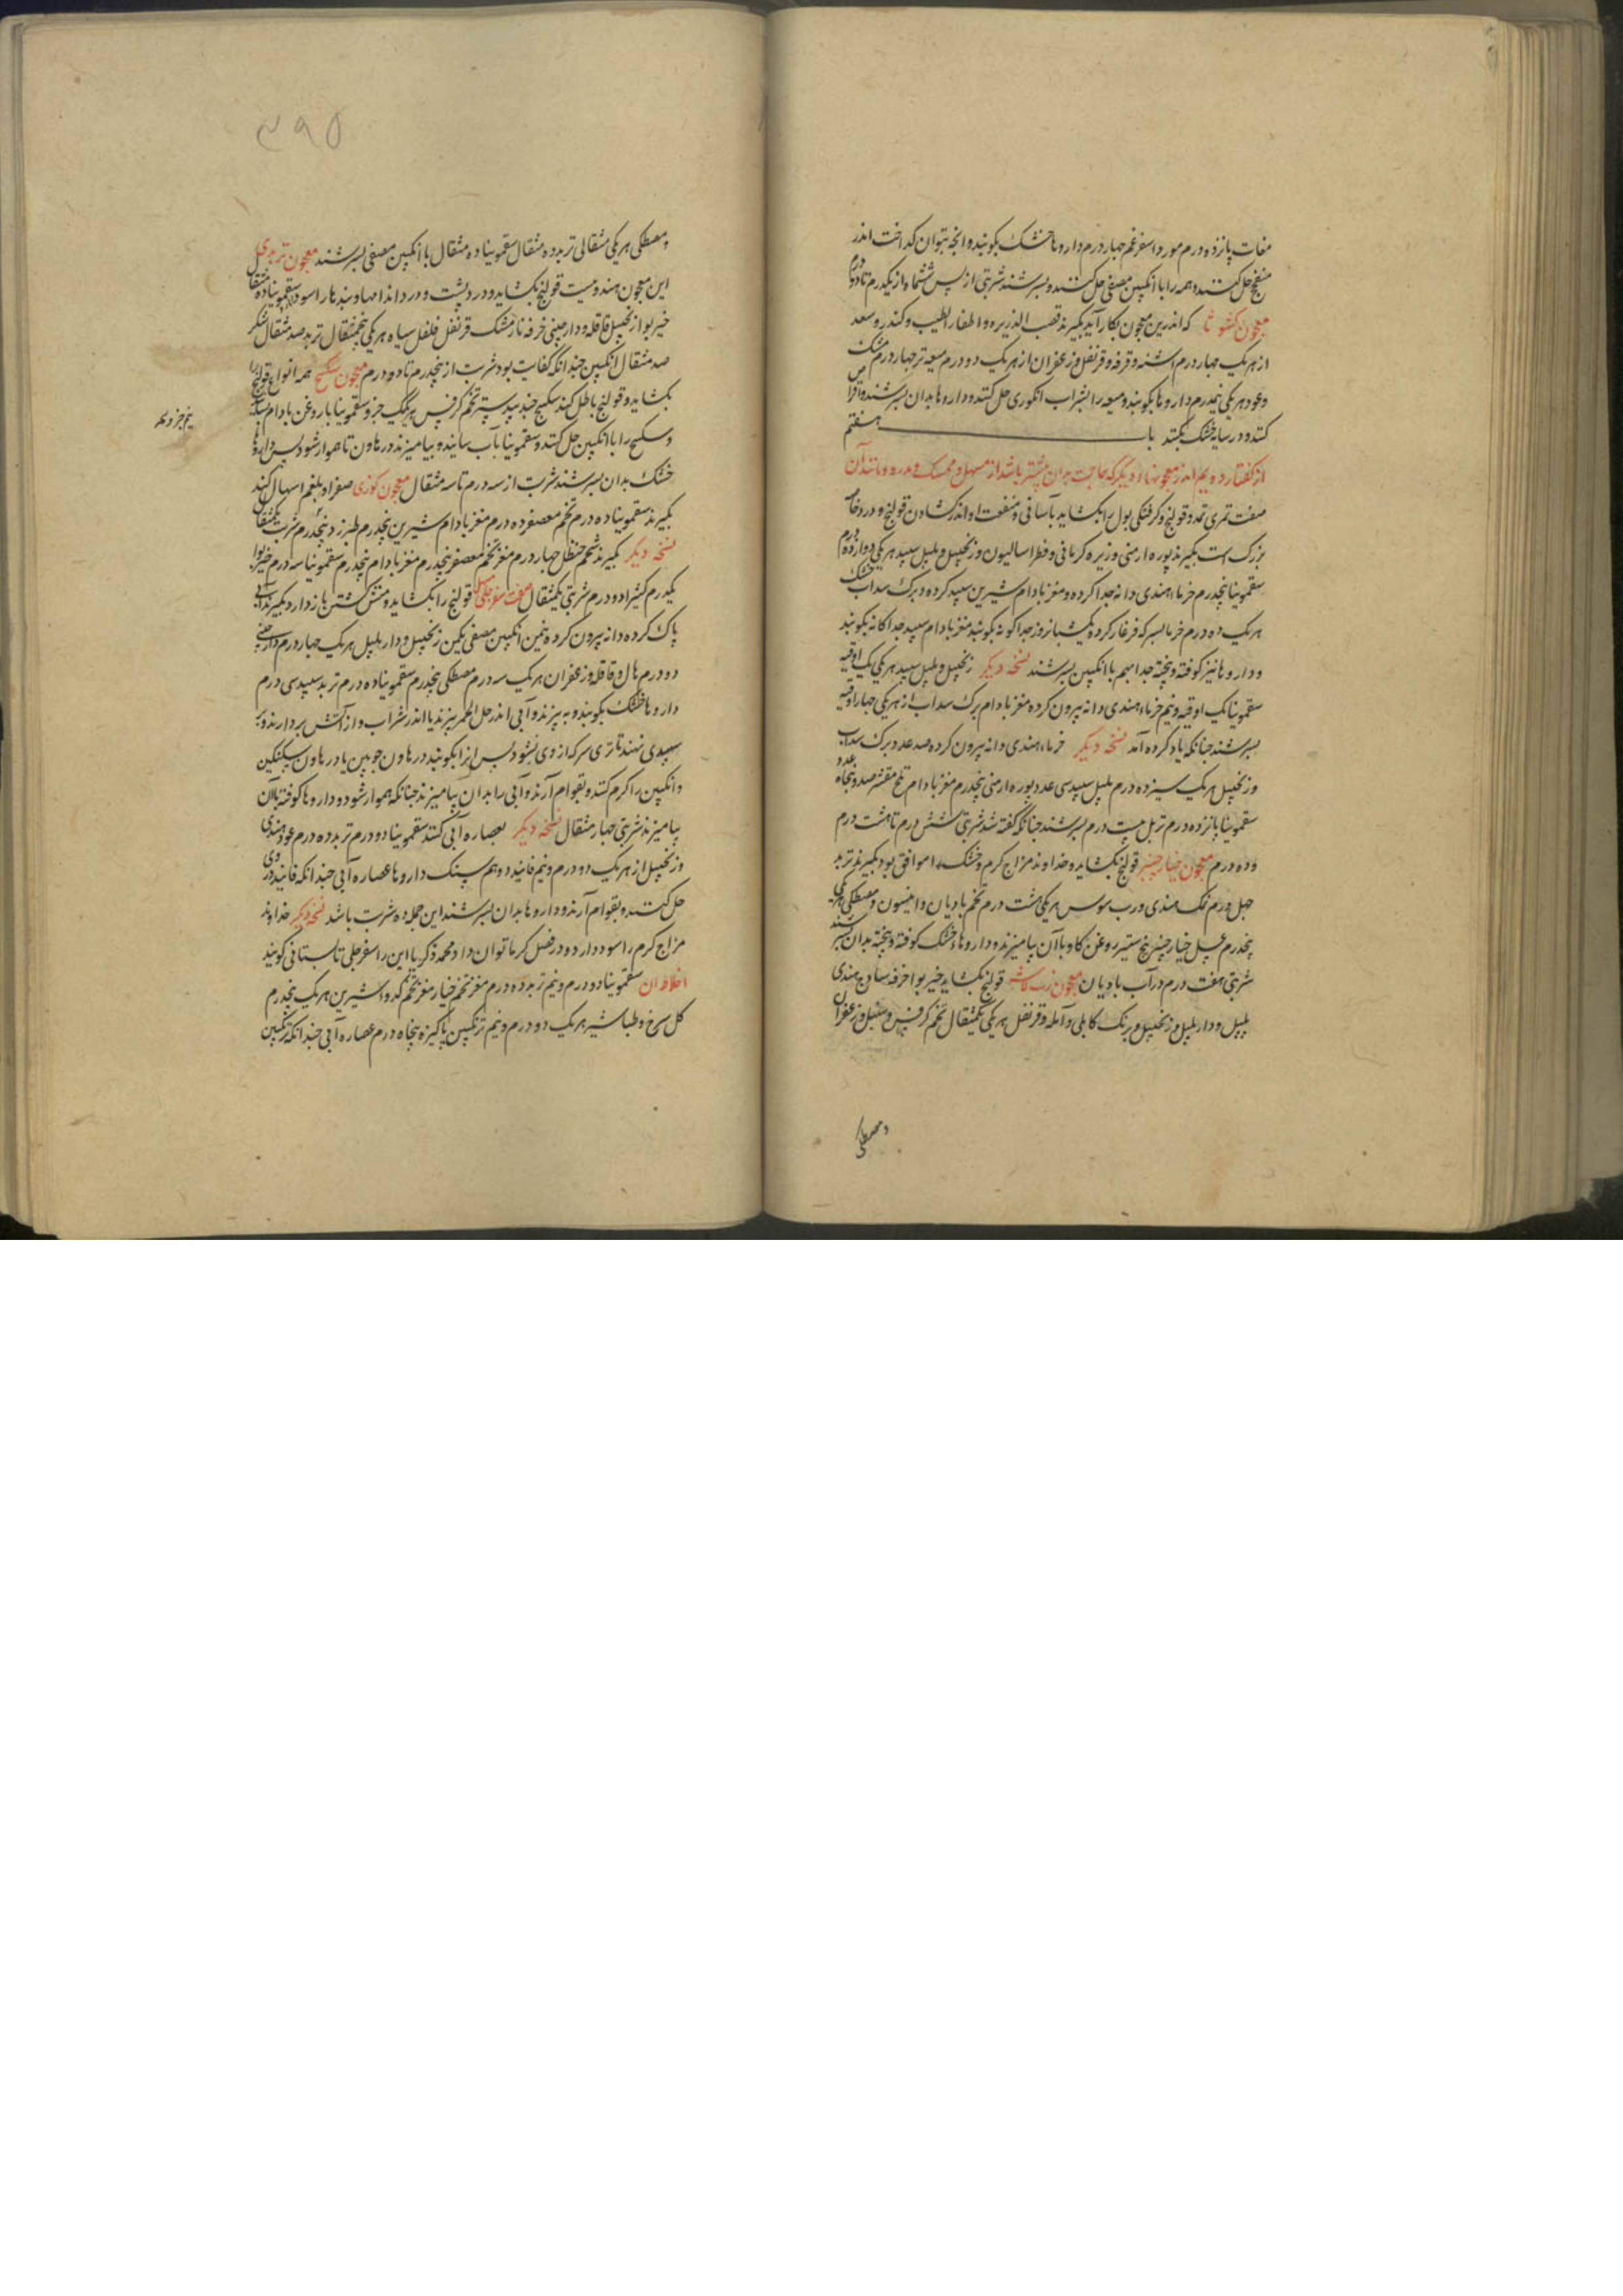 مغاث پانزده درم مورد اسفرغم چهار درم داروها خشک بکوبند و انچه بتوان کداخت اندر
حل کنند و همه را با انکبین مصفی حل کنند و بسرشند شربتی از پس شش ماه از یکدرم تا دو درم
معجون کشوثا که اندرین معجون بکار آید بکیرند قصب الذریره و اظفار الطیب و کندر و سعد
از هر یک چهار درم اشنه و قرفه و قرنفل و زعفران از هر یک دو درم میعه تر چهار درم مشک
و عود هر یکی نیمدرم داروها بکوبند و میعه را بشراب انکوری حل کنند و داروها بدان بسرشند و اقراص
کنند و در سایه خشک بکنند باب هفتم
از کفتار دویم اندر معجونها دیکر که حاجت بدان بیشتر باشد از مسهل و ممسک و مدره و مانند آن
صفت تمری تمد و قولنج و کرفتکی بول را بکشاید بآسانی و منفعت او اندر کشادن قولنج و درد
بزرک است بکیرند بوره ارمنی و زیره کرمانی و فطراسالیون و زنجبیل و پلپل سپید هر یکی دوازده درم
سقمونیا پنجدرم خرماء هندی دانه جدا کرده و مغز بادام شیرین سپید کرده و برک سداب خشک
هر یک ده درم خرما بسرکه فرغار کرده یکشبانروز جداکونه بکوبند مغز بادام سپید جداکانه بکوبند
و داروها نیز کوفته و پخته جدا بهم با انکبین بسرشند نسخه دیکر زنجبیل و پلپل سپید هر یکی یک اوقیه
سقمونیا یک اوقیه و نیم خرماء هندی دانه بیرون کرده مغز بادام برک سداب از هر یکی چهار اوقیه
بسرشند چنانکه یاد کرده آمد نسخه دیکر خرماء هندی دانه بیرون کرده صد عدد برک سداب
و زنجبیل هر یک سیزده درم پلپل سپید سی عدد بوره ارمنی پنجدرم مغز بادام تلخ مقشر صد و پنجاه عدد
سقمونیا پانزده درم تربل بیست درم بسرشند چنانکه کفته شد شربتی شش درم تا هشت درم
و ده درم معجون خیار چنبر قولنج بکشاید و خداوند مزاج کرم و خشک را موافق بود بکیرند تربد
چهل درم نمک هندی و رب سوس هر یکی هشت درم تخم بادیان و انیسون و مصطکی هر یکی
پنجدرم عسل خیار چنبر پنج ستیر روغن کاو با آن بیامیزند و داروهاء خشک کوفته و پخته بدان بسرشند
شربتی هفت درم در آب بادیان معجون قولنج بکشاید خیربوا خرفه ساذج هندی
پلپل و دارپلپل و زنجبیل و برنک کابلی و آمله و قرنفل هر یکی یکمثقال تخم کرفس و سنبل و زعفران
و مصطکی
۳۹۵
و مصطکی هر یکی مثقالی تربد ده مثقال سقمونیا ده مثقال با انکبین مصفی بسرشند معجون تربدی
این معجون هندویست قولنج بکشاید و درد پشت و درد اندامها و بندها را سود دارد سقمونیا ده مثقال
خیربوا زنجبیل قاقله و دارچینی خرفه نارمشک قرنفل فلفل سیاه هر یکی پنجمثقال تربد صد مثقال شکر
صد مثقال انکبین چندانکه کفایت بود شربت از پنجدرم تا ده درم معجون سکبینج همه انواع قولنج را
بکشاید و قولنج باطل کند سکبینج جندبیدستر تخم کرفس هر یک جزو سقمونیا با روغن بادام بسایند
نیم جزو
و سکبینج را با انکبین حل کنند و سقمونیا بآب سایند و بیامیزند در هاون تا هموار شود پس داروها
خشک بدان بسرشند شربت از سه درم تا سه مثقال معجون کوزی صفرا و بلغم اسهال کند
بکیرند سقمونیا ده درم تخم معصفر ده درم مغز بادام شیرین پنجدرم طبرزد پنجدرم شربت یکمثقال
نسخه دیکر بکیرند شحم حنظل چهار درم مغز تخم معصفر پنجدرم مغز بادام پنجدرم سقمونیا سه درم خیربوا
یکدرم کتیرا دو درم شربتی یکمثقال صفت سفرجلی قولنج را بکشاید و منش کشتن باز دارد بکیرند آبی
پاک کرده دانه بیرون کرده نیمن انکبین مصفی یکمن زنجبیل و دارپلپل هر یک چهار درم دارچینی
دو درم هال و قاقله و زعفران هر یک سه درم مصطکی پنجدرم سقمونیا ده درم تربد سپید سی درم
داروها خشک بکوبند و به پزند و آبی اندر خل الخمر بپزند یا اندر شراب و از آتش بردارند و بر
سپدی نهند تا تری سرکه از وی بشود پس انرا بکوبند در هاون چوبین یا در هاون سنکین
و انکبین را کرم کنند و بقوام آرند و آبی را بدان بیامیزند چنانکه هموار شود و داروها کوفته بآن
بیامیزند شربتی چهار مثقال نسخه دیکر بعصاره آبی کنند سقمونیا دو درم تربد ده درم عود هندی
و زنجبیل از هر یک دو درم و نیم فانید دو هم سنک داروها عصاره آبی چندانکه فانید در وی
حل کنند و بقوام آرند و داروها بدان بسرشند این جمله ده شربت باشد نسخه دیکر خداوند
مزاج کرم را سود دارد و در فصل کرما توان داد محمد زکریا این را سفرجلی تابستانی کویند
اخلاط آن سقمونیا دو درم و نیم تربد ده درم مغز تخم خیار مغز تخم کدوء شیرین هر یک پنجدرم
کل سرخ و طباشیر هر یک دو درم و نیم ترنکبین پاکیزه پنجاه درم عصاره آبی چندانکه ترنکبین